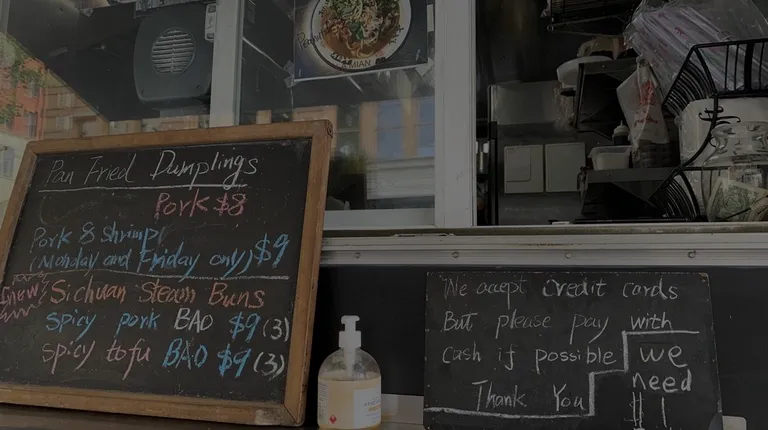 Pan Fried Dumplings
Pork $8
Pork & shrimp
(Monday and Friday only) $9
new! Sichuan Steam Buns
spicy pork BAO $9 (3)
spicy tofu BAO $9 (3)
We accept credit cards
But please pay with
cash if possible
Thank You
we
need
$1
MIAN